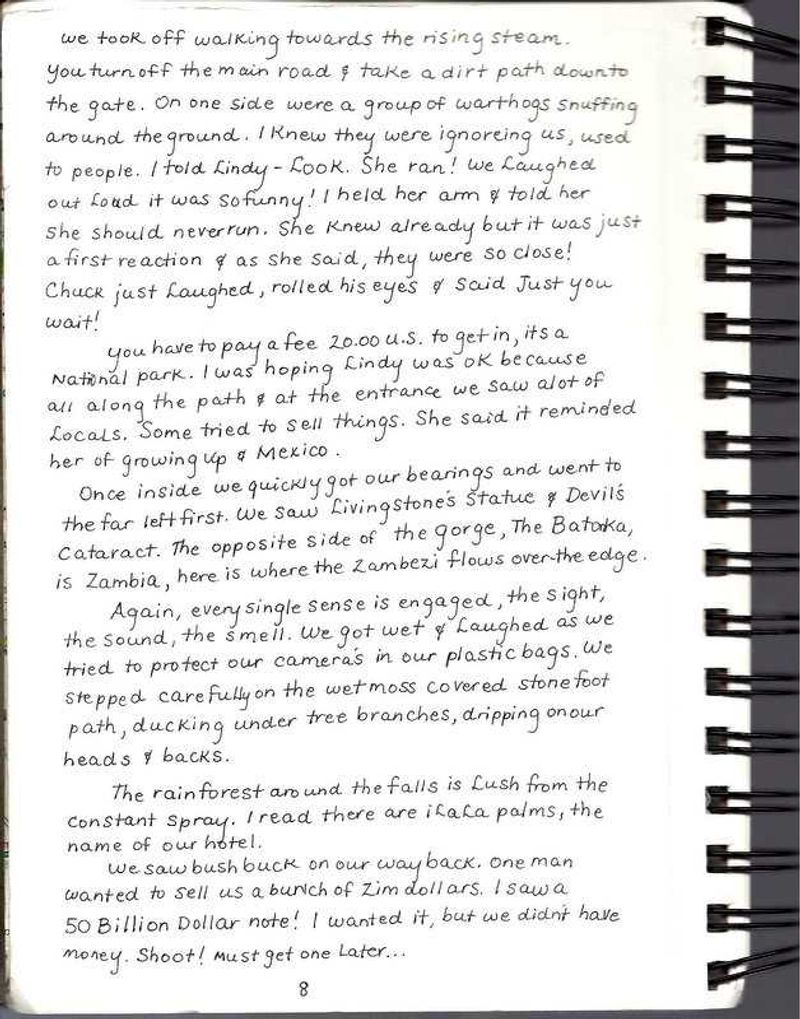 we took off walking towards the rising steam.
you turn off the main road & take a dirt path down to
the gate. On one side were a group of warthogs snuffing
around the ground. I knew they were ignoreing us, used
to people. I told Lindy - Look. She ran! We Laughed
out Loud it was so funny! I held her arm & told her
she should never run. She knew already but it was just
a first reaction & as she said, they were so close!
Chuck just Laughed, rolled his eyes & said Just you
wait!
you have to pay a fee 20.00 U.S. to get in, its a
National park. I was hoping Lindy was ok because
all along the path & at the entrance we saw alot of
Locals. Some tried to sell things. She said it reminded
her of growing up & Mexico.
Once inside we quickly got our bearings and went to
the far left first. We saw Livingstone's Statue & Devil's
Cataract. The opposite side of the gorge, The Batoka,
is Zambia, here is where the Zambezi flows over the edge.
Again, every single sense is engaged, the sight,
the sound, the smell. We got wet & Laughed as we
tried to protect our camera's in our plastic bags. We
stepped carefully on the wet moss covered stone foot
path, ducking under tree branches, dripping on our
heads & backs.
The rainforest around the falls is Lush from the
constant spray. I read there are iLaLa palms, the
name of our hotel.
We saw bush buck on our way back. One man
wanted to sell us a bunch of Zim dollars. I saw a
50 Billion Dollar note! I wanted it, but we didn't have
money. Shoot! Must get one Later...
8